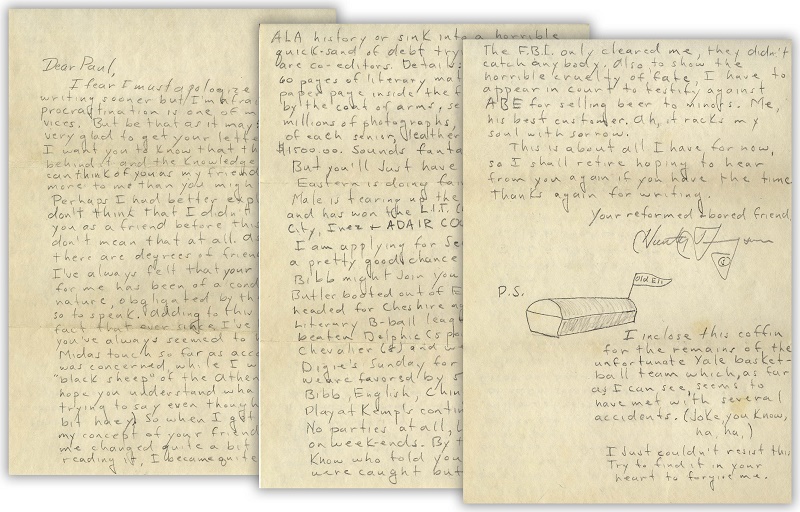 Dear Paul,
I fear I must apologize
writing sooner but I'm afrai
procrastination is one of m
vices. But be that as it may,
very glad to get your lett
I want you to know that th
behind it and the knowledge
can think of you as my friend
more to me than you migh
Perhaps I had better exp
don't think that I didn't
you as a friend before this
don't mean that at all. As
there are degrees of frien
I've always felt that your
for me has been of a cond
nature, obligated by th
so to speak. Adding to this
fact that ever since I've
you've always seemed to h
Midas touch so far as acc
was concerned, while I w
"black sheep" of the Athen
hope you understand wha
trying to say even though
bit hazy. So when I got
my concept of your friend
me changed quite a bit
reading it, I became quite
ALA history or sink into a horrible
quick-sand of debt try
are co-editors. Details:
60 pages of literary mat
paper page inside the f
by the coat of arms, se
millions of photographs,
of each senior, leather
$1500.00. Sounds fanta
But you'll just have
Eastern is doing fai
Male is tearing up the
and has won the L.I.T. (
City, Inez + ADAIR CO
I am applying for Se
a pretty good chance
Bibb might join you
Butler booted out of E
headed for Cheshire a
Literary B-ball leag
beaten Delphic (5 p
Chevalier (8) and w
Digie's Sunday for
weare favored by 5
Bibb, English, Chin
Play at Kemp's conti
No parties at all, b
on week-ends. By t
Know who told you
were caught but
The F.B.I. only cleared me, they didn't
catch anybody. Also to show the
horrible cruelty of fate, I have to
appear in court to testify against
ABE for selling beer to minors. Me,
his best customer. Ah, it racks my
soul with sorrow.
This is about all I have for now,
so I shall retire hoping to hear
from you again if you have the time
Thanks again for writing.
Your reformed + bored friend
Old Eli
P.S.
I inclose this coffin
for the remains of the
unfortunate Yale basket-
ball team which, as far
as I can see, seems to
have met with several
accidents. (Joke, you know,
ha, ha.)
I Just couldn't resist this
Try to find it in your
heart to forgive me.